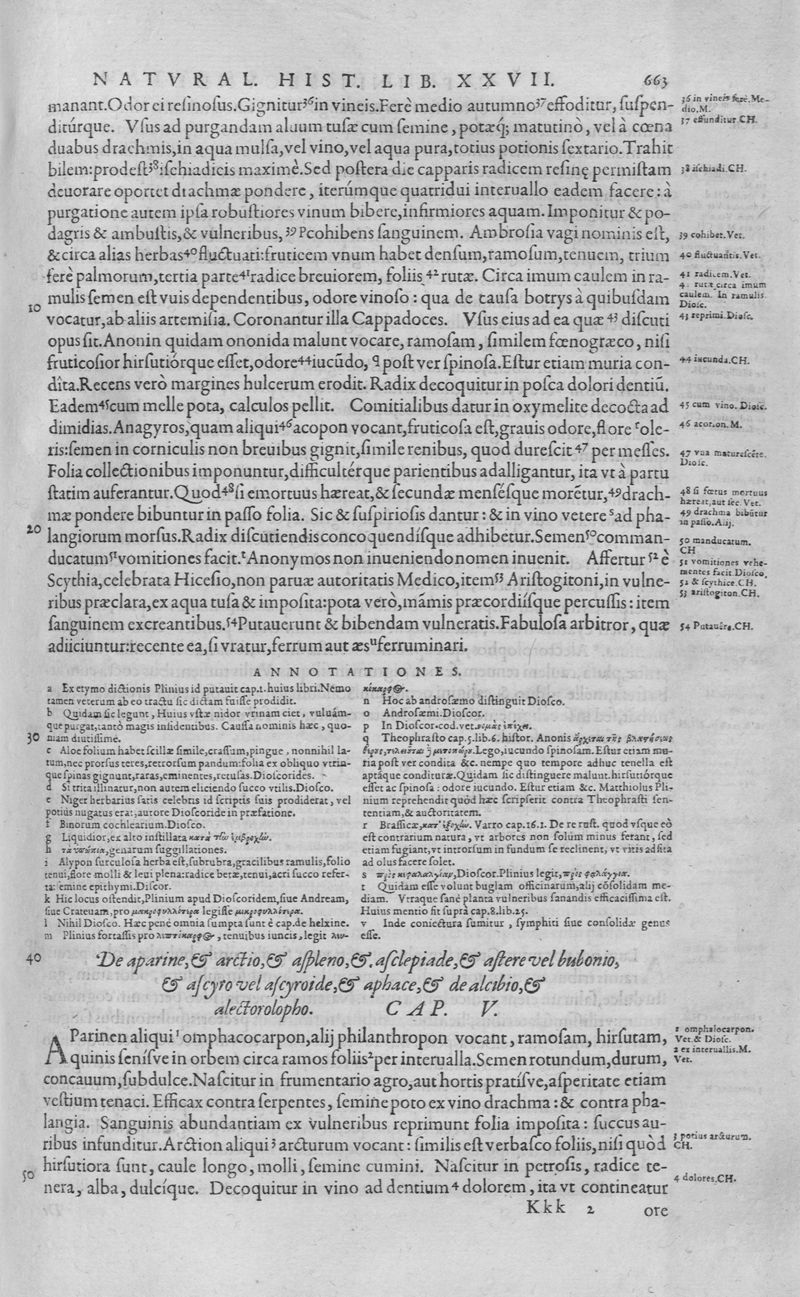 NATVRAL. HIST. LIB. XXVII. 663
manant.Odor ei resinosus.Gignitur³⁶in vineis.Ferè medio autumno³⁷effoditur, suspen-
ditúrque. Vsus ad purgandam aluum tusæ cum semine, potæq́; matutinò, vel à cœna
duabus drachmis,in aqua mulsa,vel vino,vel aqua pura,totius potionis sextario.Trahit
bilem:prodest³⁸ischiadicis maximè.Sed postera die capparis radicem resinę permistam
deuorare oportet drachmæ pondere, iterúmque quatridui interuallo eadem facere: à
purgatione autem ipsa robustiores vinum bibere,infirmiores aquam.Imponitur & po-
dagris & ambustis,& vulneribus, ³⁹ᵖcohibens sanguinem. Ambrosia vagi nominis est,
& circa alias herbas⁴⁰fluctuati:fruticem vnum habet densum,ramosum,tenuem, trium
ferè palmorum,tertia parte⁴¹radice breuiorem, foliis ⁴²rutæ. Circa imum caulem in ra-
10 mulis semen est vuis dependentibus, odore vinoso : qua de causa botrys à quibusdam
vocatur,ab aliis artemisia. Coronantur illa Cappadoces. Vsus eius ad ea quæ ⁴³ discuti
opus sit.Anonin quidam ononida malunt vocare, ramosam, similem fœnogræco, nisi
fruticosior hirsutiórque esset,odore⁴⁴iucũdo, ᑫ post ver spinosa.Estur etiam muria con-
dita.Recens verò margines hulcerum erodit. Radix decoquitur in posca dolori dentiũ.
Eadem⁴⁵cum melle pota, calculos pellit. Comitialibus datur in oxymelite decocta ad
dimidias.Anagyros,quam aliqui⁴⁶acopon vocant,fruticosa est,grauis odore,flore ʳole-
ris:semen in corniculis non breuibus gignit,simile renibus, quod durescit⁴⁷ per messes.
Folia collectionibus imponuntur,difficultérque parientibus adalligantur, ita vt à partu
statim auferantur.Quod⁴⁸si emortuus hæreat,& secundæ menséſque morẽtur,⁴⁹drach-
mæ pondere bibuntur in passo folia. Sic & suspiriosis dantur : & in vino vetere ˢad pha-
20 langiorum morsus.Radix discutiendis concoquendisque adhibetur.Semen⁵⁰comman-
ducatum⁵¹vomitiones facit.ᵗAnonymos non inueniendo nomen inuenit. Affertur ⁵² è
Scythia,celebrata Hicesio,non paruæ autoritatis Medico,item⁵³ Aristogitoni,in vulne-
ribus præclara,ex aqua tusa & imposita:pota verò,mãmis præcordiísque percussis : item
sanguinem excreantibus.⁵⁴Putauerunt & bibendam vulneratis.Fabulosa arbitror, quæ
adiiciuntur:recente ea,si vratur,ferrum aut æsᵘferruminari.
36 in vineis ferè. Me-
dio.M.
37 effunditur.CH.
38 ischiadi.CH.
39 cohibet.Vet.
40 fluctuantis.Vet.
41 radicem.Vet.
42 rutæ,circa imum
caulem. In ramulis
Diosc.
43 reprimi.Diosc.
44 iucunda.CH.
45 cum vino.Diosc.
46 acoron.M.
47 vua maturescẽte.
Diosc.
48 si fœtus mortuus
hæreat,aut sec.Vet.
49 drachma bibũtur
in passo.Alij.
50 manducatum.
CH
51 vomitiones vehe-
mentes facit.Diosco.
52 & scythice.CH.
53 aristogiton.CH.
54 Putauêre.CH.
ANNOTATIONES.
a Ex etymo dictionis Plinius id putauit cap.1.huius libri.Nemo
tamen veterum ab eo tractu sic dictam fuisse prodidit.
b Quidam sic legunt, Huius vstæ nidor vrinam ciet, vuluám-
que purgat,tantò magis insidentibus. Caussa nominis hæc , quo-
30 niam diutissimè.
c Aloe folium habet scillæ simile,crassum,pingue , nonnihil la-
tum,nec prorsus teres,retrorsum pandum:folia ex obliquo vtrin-
que spinas gignunt,raras,eminentes,retusas.Dioscorides.
d Si trita illinatur,non autem eliciendo succo vtilis.Diosco.
e Niger herbarius satis celebris id scriptis suis proderat, vel
potius nugatus erat,autore Dioscoride in præfatione.
f Binorum cochlearium.Diosco.
g Liquidior,ex alto instillata
h genarum suggillationes.
i Alypon surculosa herba est,subrubra,gracilibus ramulis,folio
tenui,flore molli & leui plena:radice betæ,tenui,acri succo refer-
ta:semine epithymi.Discor.
k Hic locus ostendit,Plinium apud Dioscoridem,siue Andream,
siue Crateuam,pro μακροφυλλότερα legisse μικροφυλλότερα.
l Nihil Diosco. Hæc penè omnia sumpta sunt è cap.de helxine.
m Plinius fortassis pro , tenuibus iuncis,legit
n Hoc ab androsæmo distinguit Diosco.
o Androsæmi.Dioscor.
p In Dioscor.cod.vet.
q Theophrasto cap.5.lib.6.histor. Anonis
Lego,iucundo spinosam.Estur etiam mu-
ria post ver condita &c. nempe quo tempore adhuc tenella est
aptáque condituræ.Quidam sic distinguere malunt.hirsutiórque
esset ac spinosa : odore iucundo. Estur etiam &c. Matthiolus Pli-
nium reprehendit quòd hæc scripserit contra Theophrasti sen-
tentiam,& auctoritatem.
r Brassicæ, Varro cap.16.1. De re rust. quod vsque eò
est contrarium natura, vt arbores non solùm minus ferant, sed
etiam fugiant,vt introrsum in fundum se reclinent, vt vitis adsita
ad olus facere solet.
s Dioscor.Plinius legit,
t Quidam esse volunt buglam officinarum,alij cõsolidam me-
diam. Vtraque sanè planta vulneribus sanandis efficacissima est.
Huius mentio fit suprà cap.8.lib.25.
v Inde coniectura sumitur , symphiti siue consolidæ genus
esse.
40 De aparine,& arctio,& aspleno,& asclepiade,& astere vel bubonio,
& ascyro vel ascyroide,& aphace,& de alcibio,&
alectorolopho. CAP. V.
APARinen aliqui¹omphacocarpon,alij philanthropon vocant, ramosam, hirsutam,
quinis senísve in orbem circa ramos foliis²per interualla.Semen rotundum,durum,
concauum,subdulce.Nascitur in frumentario agro,aut hortis pratísve,asperitate etiam
vestium tenaci. Efficax contra serpentes, semine poto ex vino drachma:& contra pha-
langia. Sanguinis abundantiam ex vulneribus reprimunt folia imposita : succus au-
ribus infunditur.Arction aliqui³ arcturum vocant: similis est verbasco foliis,nisi quòd
50 hirsutiora sunt, caule longo, molli, semine cumini. Nascitur in petrosis, radice te-
nera, alba, dulcíque. Decoquitur in vino ad dentium⁴ dolorem, ita vt contineatur
1 omphalocarpon.
Vet.& Diosc.
2 ex interuallis.M.
Vet.
3 potius arcturum.
CH.
4 dolores.CH.
Kkk 2 ore